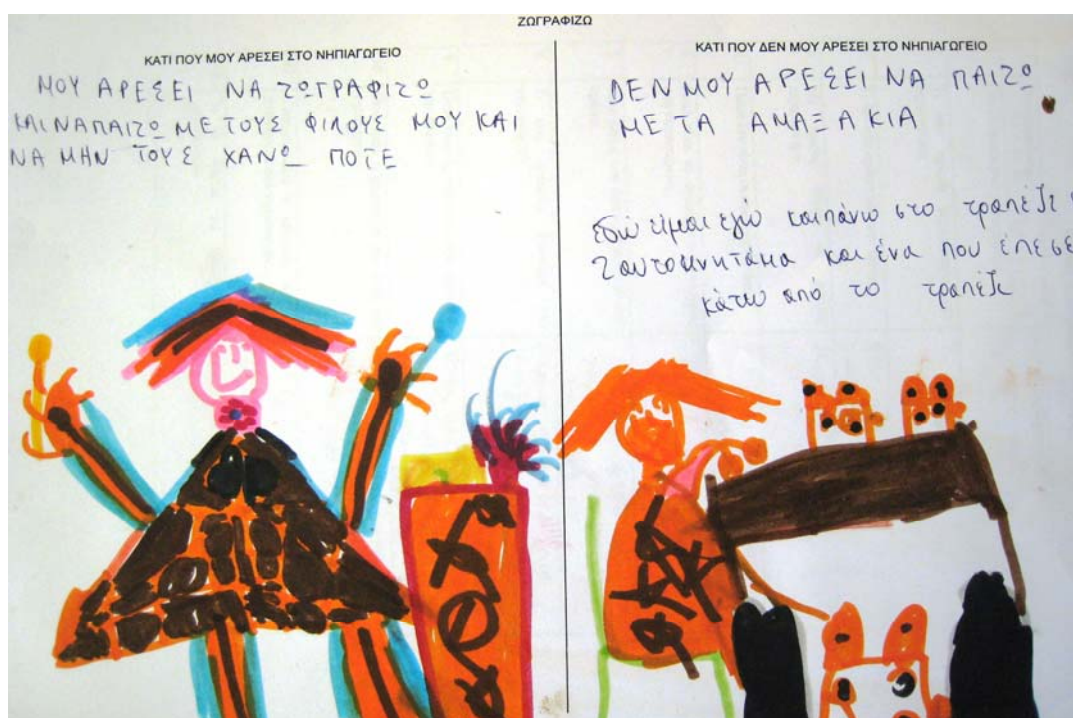 ΖΩΓΡΑΦΙΖΩ
ΚΑΤΙ ΠΟΥ ΜΟΥ ΑΡΕΣΕΙ ΣΤΟ ΝΗΠΙΑΓΩΓΕΙΟ
ΜΟΥ ΑΡΕΣΕΙ ΝΑ ΖΩΓΡΑΦΙΖΩ
ΚΑΙ ΝΑ ΠΑΙΖΩ ΜΕ ΤΟΥΣ ΦΙΛΟΥΣ ΜΟΥ ΚΑΙ
ΝΑ ΜΗΝ ΤΟΥΣ ΧΑΝΩ ΠΟΤΕ
ΚΑΤΙ ΠΟΥ ΔΕΝ ΜΟΥ ΑΡΕΣΕΙ ΣΤΟ ΝΗΠΙΑΓΩΓΕΙΟ
ΔΕΝ ΜΟΥ ΑΡΕΣΕΙ ΝΑ ΠΑΙΖΩ
ΜΕ ΤΑ ΑΜΑΞΑΚΙΑ
εδώ είμαι εγώ και πάνω στο τραπέζι
2 αυτοκινητάκια και ένα που έπεσε
κάτω από το τραπέζι